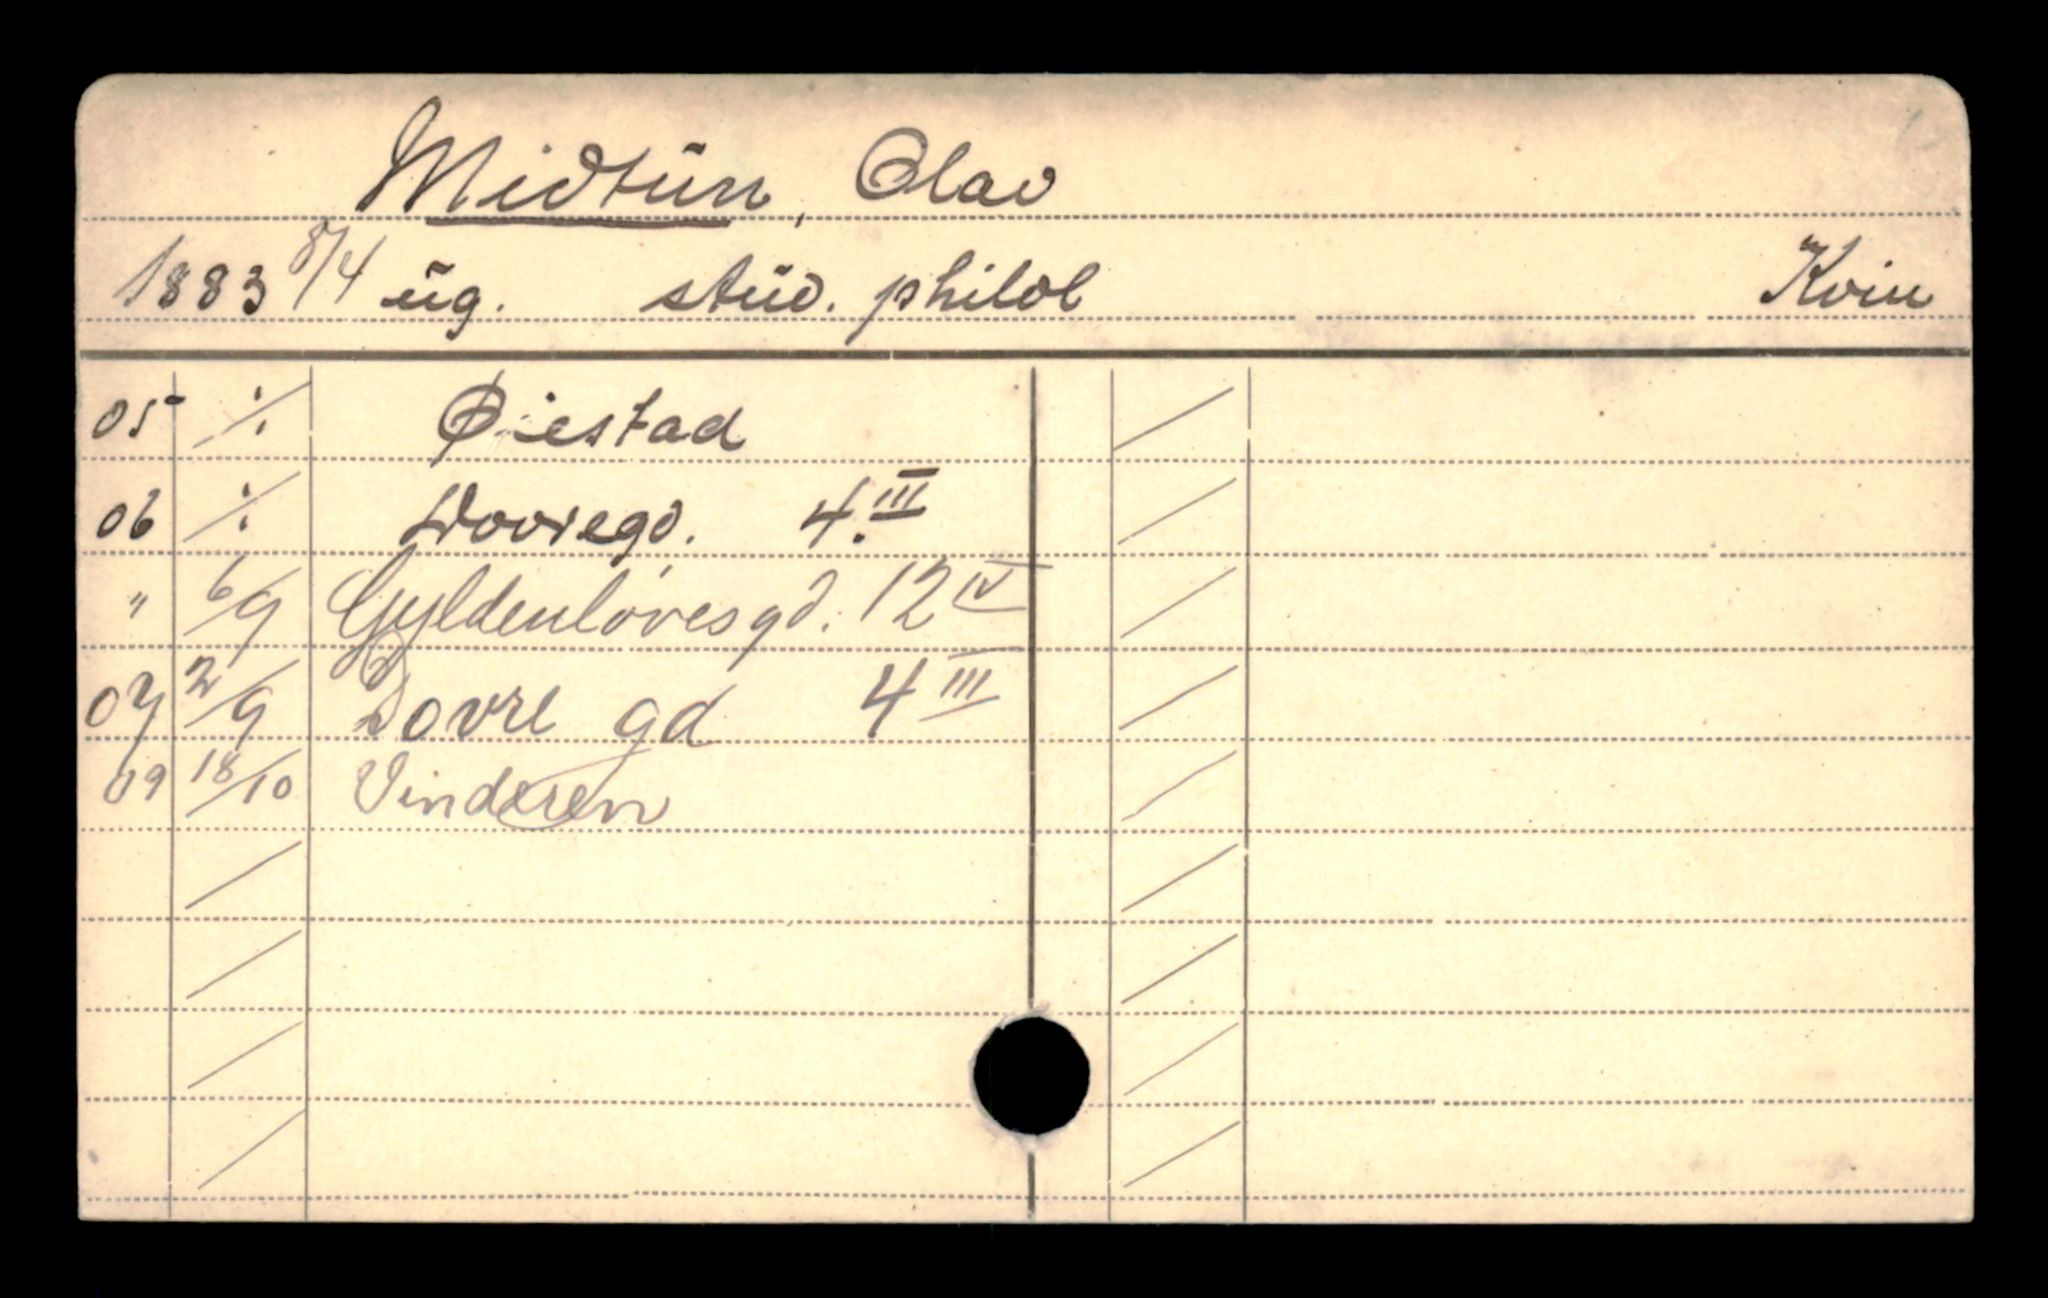 Midtūn, Olav
1883 8/4 ūg. stūd. philol Kvin
05 ÷ Øiestad
06 ÷ Dovregd. 4.III
" 6/9 Gyldenløvesgd. 12 IV
07 2/9 Dovre gd 4 III
09 18/10 Vinderen